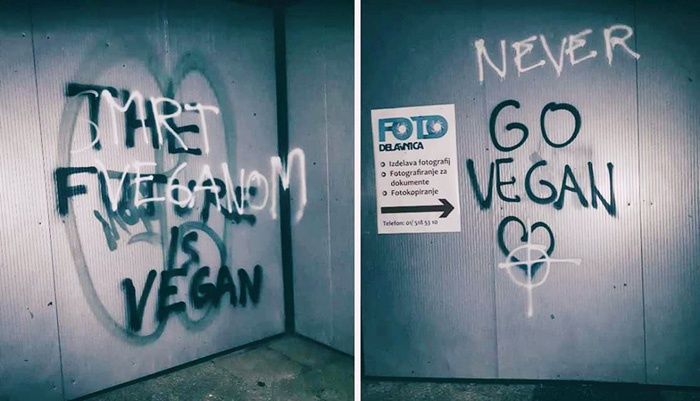 SMRT
VEGANOM
IS
VEGAN
NEVER
GO
VEGAN
FOTO
DELAVNICA
Izdelava fotografij
Fotografiranje za
dokumente
Fotokopiranje
Telefon: 01/ 518 53 10